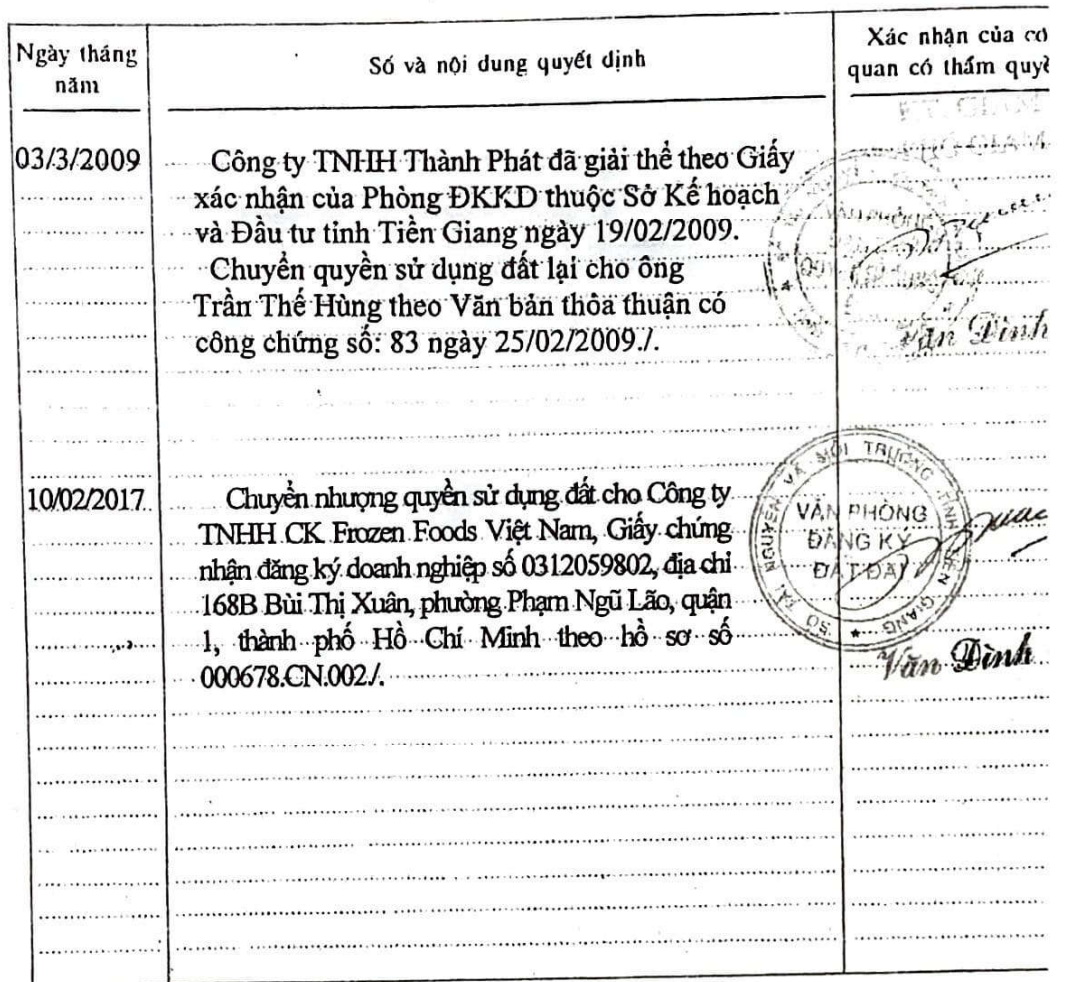 Ngày tháng
năm
Số và nội dung quyết định
Xác nhận của cơ
quan có thẩm quyề
03/3/2009
Công ty TNHH Thành Phát đã giải thể theo Giấy
xác nhận của Phòng ĐKKD thuộc Sở Kế hoạch
và Đầu tư tỉnh Tiền Giang ngày 19/02/2009.
Chuyển quyền sử dụng đất lại cho ông
Trần Thế Hùng theo Văn bản thỏa thuận có
công chứng số: 83 ngày 25/02/2009./.
Văn Đình
10/02/2017
Chuyển nhượng quyền sử dụng đất cho Công ty
TNHH CK Frozen Foods Việt Nam, Giấy chứng
nhận đăng ký doanh nghiệp số 0312059802, địa chỉ
168B Bùi Thị Xuân, phường Phạm Ngũ Lão, quận
1, thành phố Hồ Chí Minh theo hồ sơ số
000678.CN.002./.
SỞ TÀI NGUYÊN VÀ MÔI TRƯỜNG TỈNH TIỀN GIANG
VĂN PHÒNG
ĐĂNG KÝ
ĐẤT ĐAI
Văn Đình